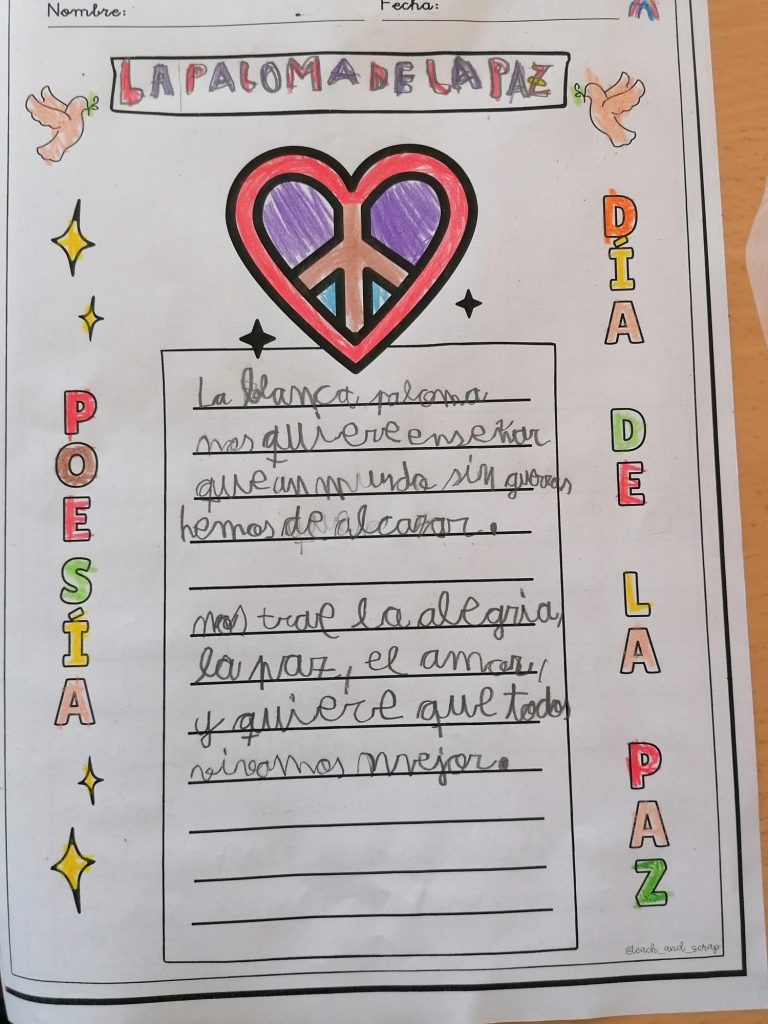 Nombre:
Fecha:
LA PALOMA DE LA PAZ
POESÍA
La blanca paloma
nos quiere enseñar
que un mundo sin guerras
hemos de alcazar.
nos trae la alegria,
la paz, el amor,
y quiere que todos
vivamos mejor.
DÍA DE LA PAZ
@teach_and_scrap